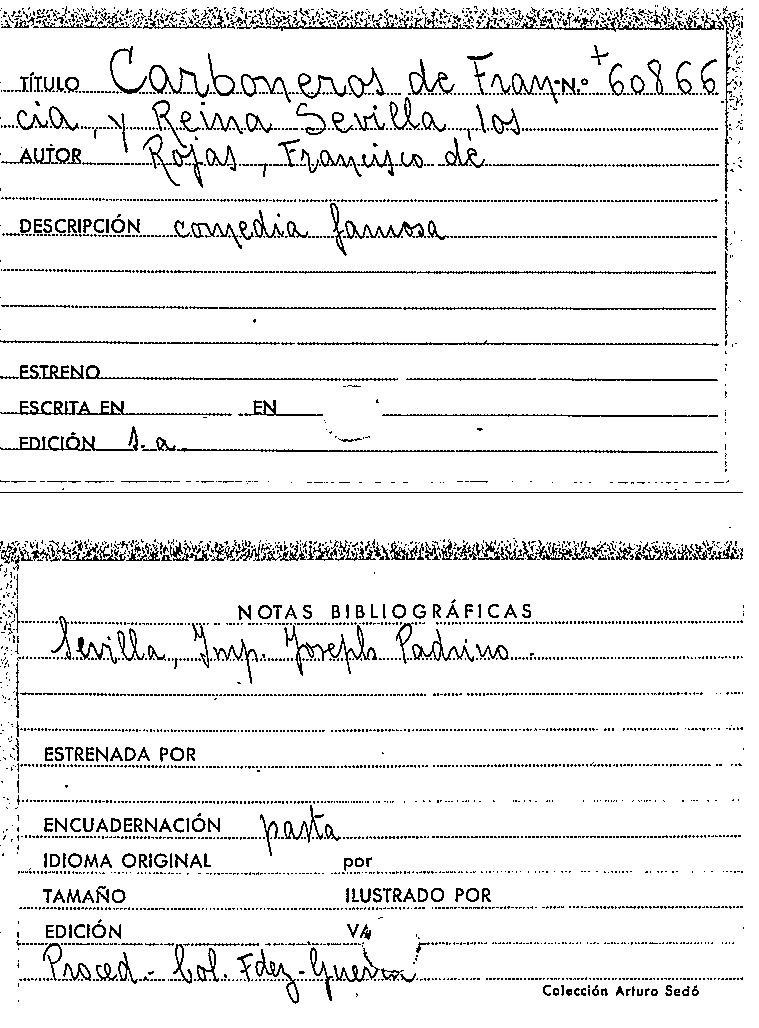 TÍTULO Carboneros de Fran- N.º +60866
cia, y Reina Sevilla, los
AUTOR Rojas, Francisco de
DESCRIPCIÓN comedia famosa
ESTRENO
ESCRITA EN EN
EDICIÓN s. a.
NOTAS BIBLIOGRÁFICAS
Sevilla, Imp. Joseph Padrino.
ESTRENADA POR
ENCUADERNACIÓN pasta
IDIOMA ORIGINAL por
TAMAÑO ILUSTRADO POR
EDICIÓN
Proced.- Col. Fdez-Guerra
Colección Arturo Sedó